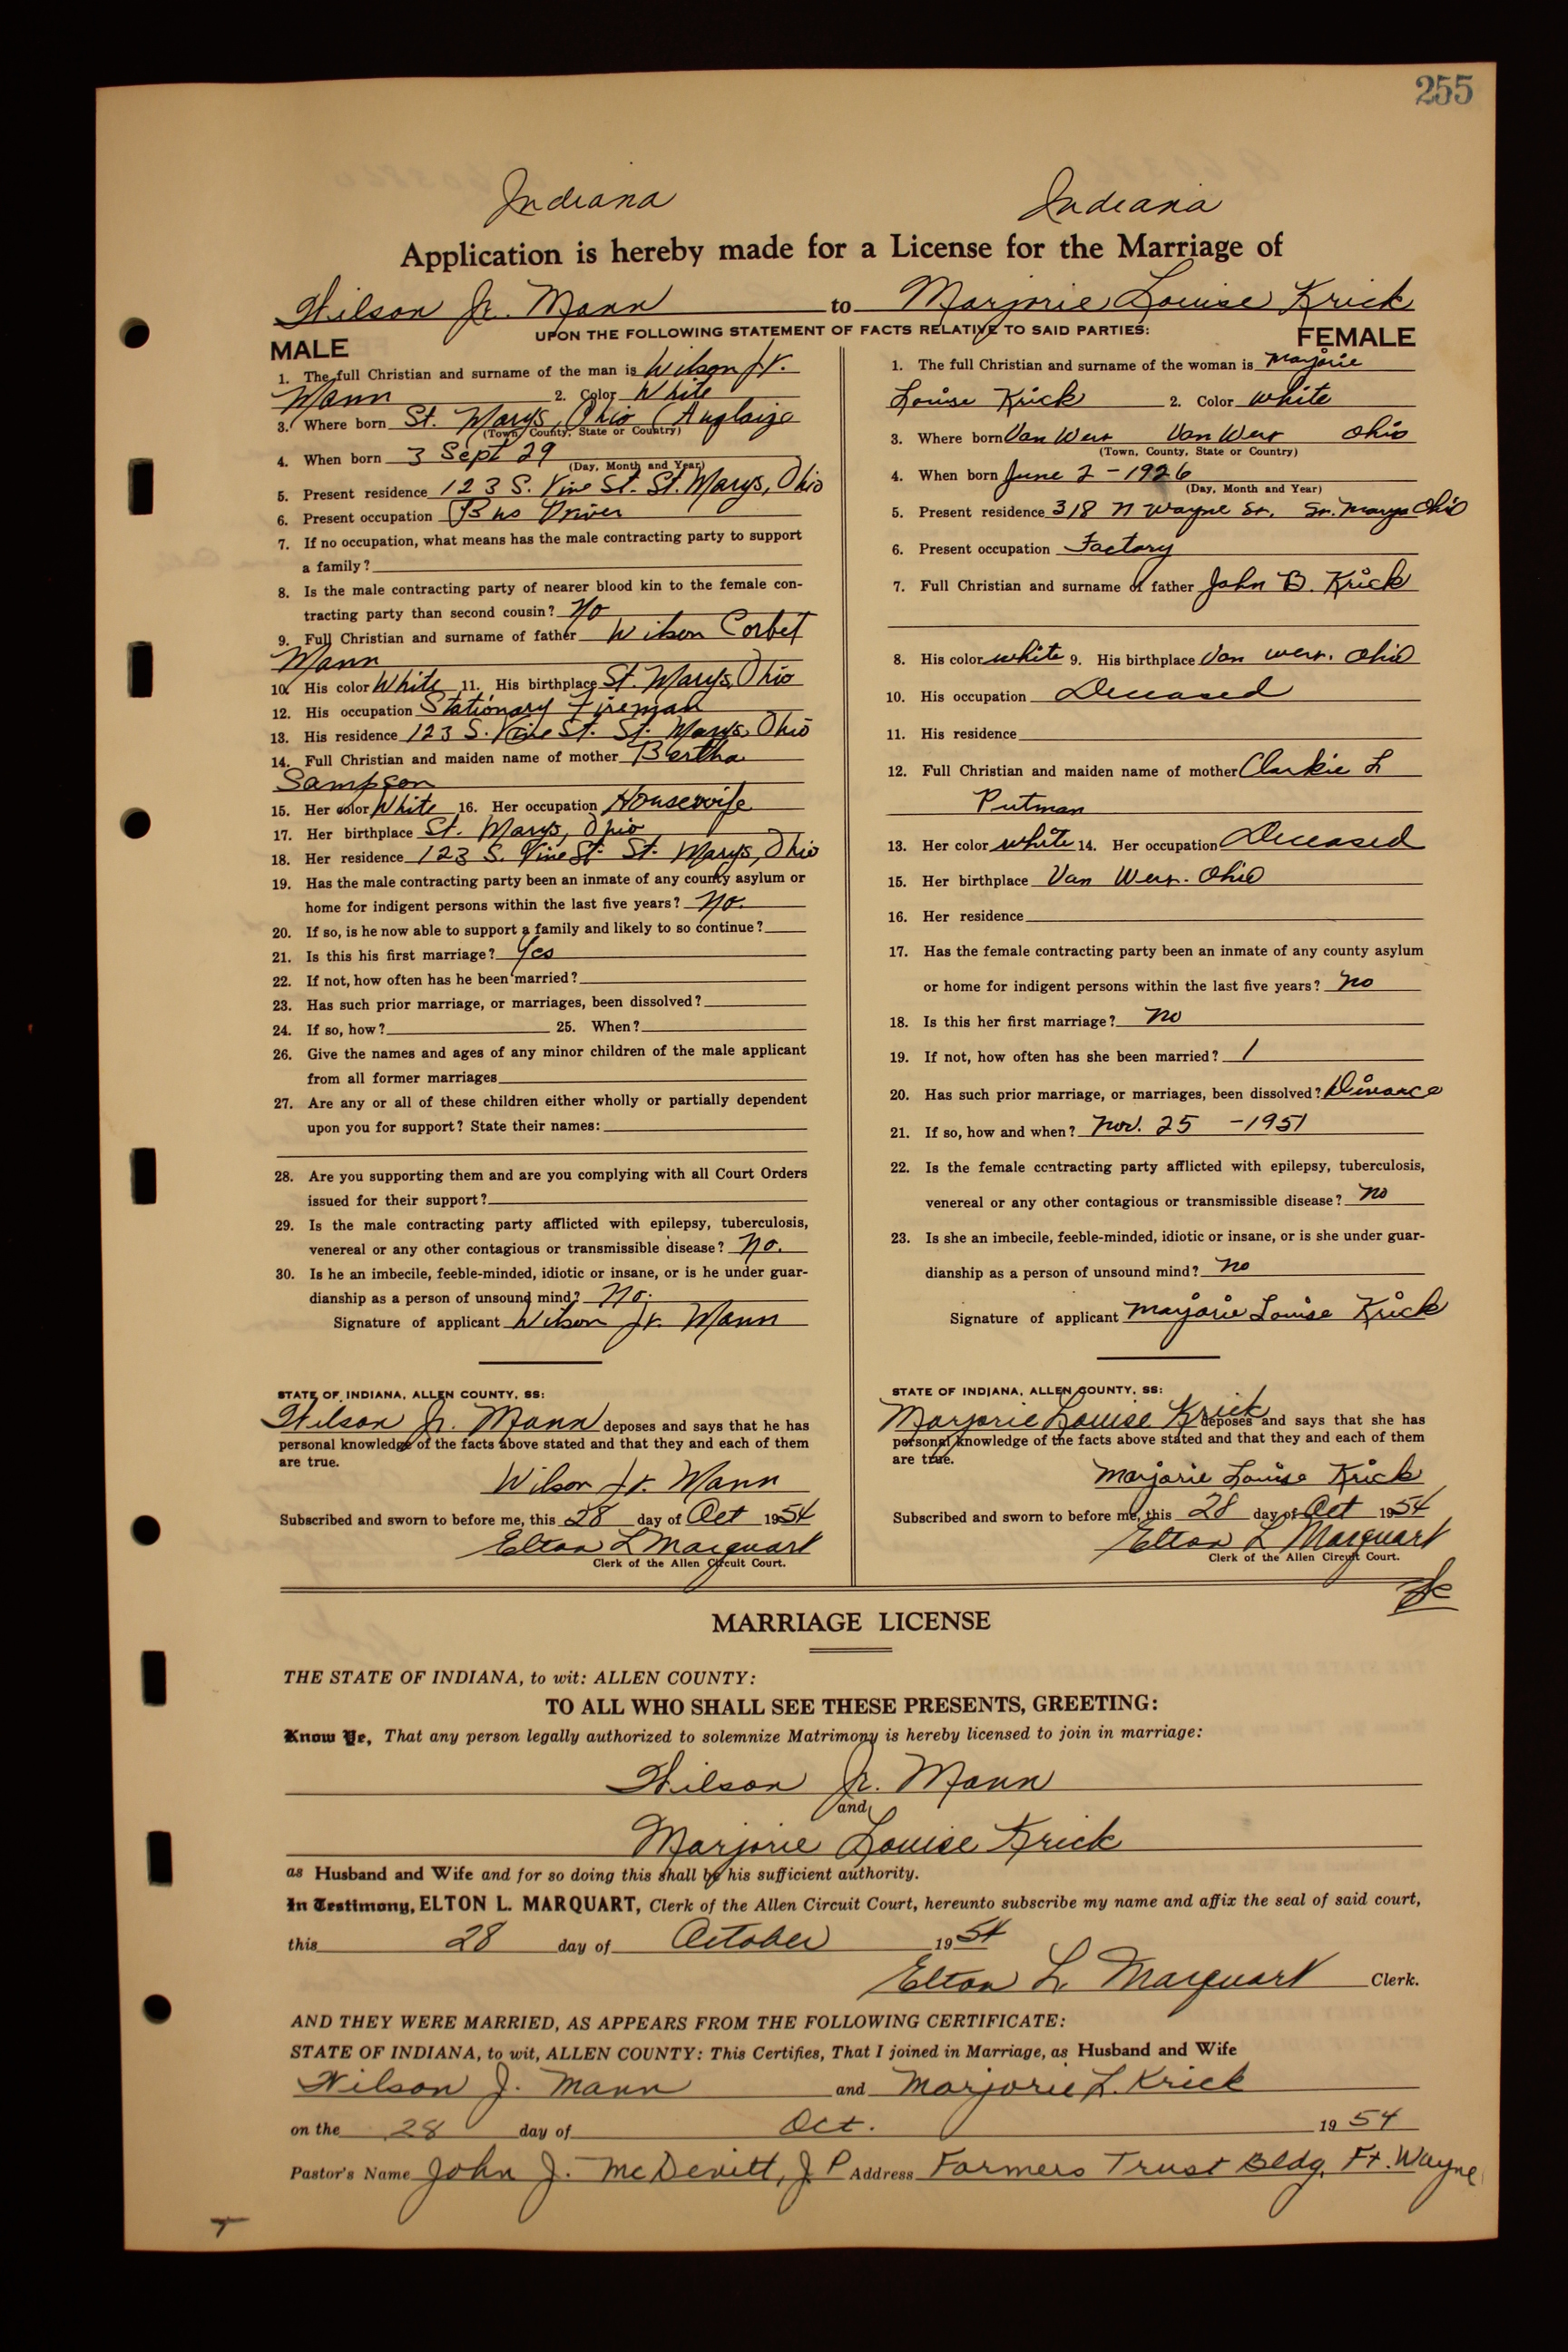 255
Indiana Indiana
Application is hereby made for a License for the Marriage of
Wilson Jr. Mann to Marjorie Louise Krick
UPON THE FOLLOWING STATEMENT OF FACTS RELATIVE TO SAID PARTIES:
MALE
1. The full Christian and surname of the man is Wilson Jr.
Mann 2. Color White
3. Where born St. Marys, Ohio (Auglaize
(Town, County, State or Country)
4. When born 3 Sept 29
(Day, Month and Year)
5. Present residence 123 S. Vine St. St. Marys, Ohio
6. Present occupation Bus Driver
7. If no occupation, what means has the male contracting party to support
a family?
8. Is the male contracting party of nearer blood kin to the female con-
tracting party than second cousin? No
9. Full Christian and surname of father Wilson Corbet
Mann
10. His color White 11. His birthplace St. Marys, Ohio
12. His occupation Stationary Fireman
13. His residence 123 S. Vine St. St. Marys, Ohio
14. Full Christian and maiden name of mother Bertha
Sampson
15. Her color White 16. Her occupation Housewife
17. Her birthplace St. Marys, Ohio
18. Her residence 123 S. Vine St. St. Marys, Ohio
19. Has the male contracting party been an inmate of any county asylum or
home for indigent persons within the last five years? No.
20. If so, is he now able to support a family and likely to so continue?
21. Is this his first marriage? Yes
22. If not, how often has he been married?
23. Has such prior marriage, or marriages, been dissolved?
24. If so, how? 25. When?
26. Give the names and ages of any minor children of the male applicant
from all former marriages
27. Are any or all of these children either wholly or partially dependent
upon you for support? State their names:
28. Are you supporting them and are you complying with all Court Orders
issued for their support?
29. Is the male contracting party afflicted with epilepsy, tuberculosis,
venereal or any other contagious or transmissible disease? No.
30. Is he an imbecile, feeble-minded, idiotic or insane, or is he under guar-
dianship as a person of unsound mind? No.
Signature of applicant Wilson Jr. Mann
STATE OF INDIANA, ALLEN COUNTY, SS:
Wilson Jr. Mann deposes and says that he has
personal knowledge of the facts above stated and that they and each of them
are true.
Wilson Jr. Mann
Subscribed and sworn to before me, this 28 day of Oct 1954
Elton L Marquart
Clerk of the Allen Circuit Court.
FEMALE
1. The full Christian and surname of the woman is Marjorie
Louise Krick 2. Color white
3. Where born Van Wert Van Wert Ohio
(Town, County, State or Country)
4. When born June 2 - 1926
(Day, Month and Year)
5. Present residence 318 N Wayne St. St. Marys Ohio
6. Present occupation Factory
7. Full Christian and surname of father John B. Krick
8. His color white 9. His birthplace Van Wert. Ohio
10. His occupation Deceased
11. His residence
12. Full Christian and maiden name of mother Clarkie L
Putman
13. Her color white 14. Her occupation Deceased
15. Her birthplace Van Wert. Ohio
16. Her residence
17. Has the female contracting party been an inmate of any county asylum
or home for indigent persons within the last five years? no
18. Is this her first marriage? no
19. If not, how often has she been married? 1
20. Has such prior marriage, or marriages, been dissolved? Divorce
21. If so, how and when? Nov. 25 - 1951
22. Is the female contracting party afflicted with epilepsy, tuberculosis,
venereal or any other contagious or transmissible disease? no
23. Is she an imbecile, feeble-minded, idiotic or insane, or is she under guar-
dianship as a person of unsound mind? no
Signature of applicant Marjorie Louise Krick
STATE OF INDIANA, ALLEN COUNTY, SS:
Marjorie Louise Krick deposes and says that she has
personal knowledge of the facts above stated and that they and each of them
are true.
Marjorie Louise Krick
Subscribed and sworn to before me, this 28 day of Oct 1954
Elton L Marquart
Clerk of the Allen Circuit Court.
MARRIAGE LICENSE
THE STATE OF INDIANA, to wit: ALLEN COUNTY:
TO ALL WHO SHALL SEE THESE PRESENTS, GREETING:
Know Ye, That any person legally authorized to solemnize Matrimony is hereby licensed to join in marriage:
Wilson Jr. Mann
and
Marjorie Louise Krick
as Husband and Wife and for so doing this shall be his sufficient authority.
In Testimony, ELTON L. MARQUART, Clerk of the Allen Circuit Court, hereunto subscribe my name and affix the seal of said court,
this 28 day of October 1954
Elton L. Marquart Clerk.
AND THEY WERE MARRIED, AS APPEARS FROM THE FOLLOWING CERTIFICATE:
STATE OF INDIANA, to wit, ALLEN COUNTY: This Certifies, That I joined in Marriage, as Husband and Wife
Wilson J. Mann and Marjorie L. Krick
on the 28 day of Oct. 1954
Pastor's Name John J. McDevitt, J P Address Farmers Trust Bldg, Ft. Wayne